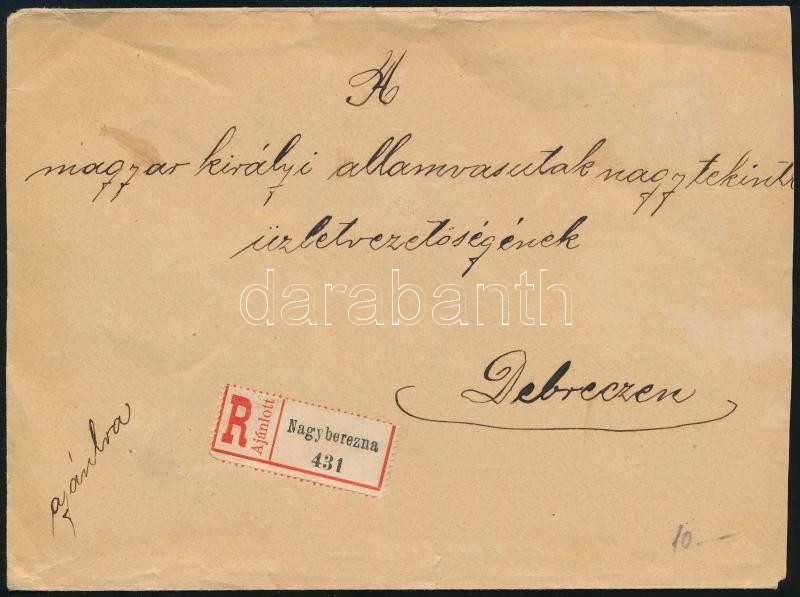 A
magyar királyi allamvasutak nagytekint
üzletvezetőségének
darabanth
Debreczen
ajánlva
R
Ajánlott
Nagyberezna
431
10.—